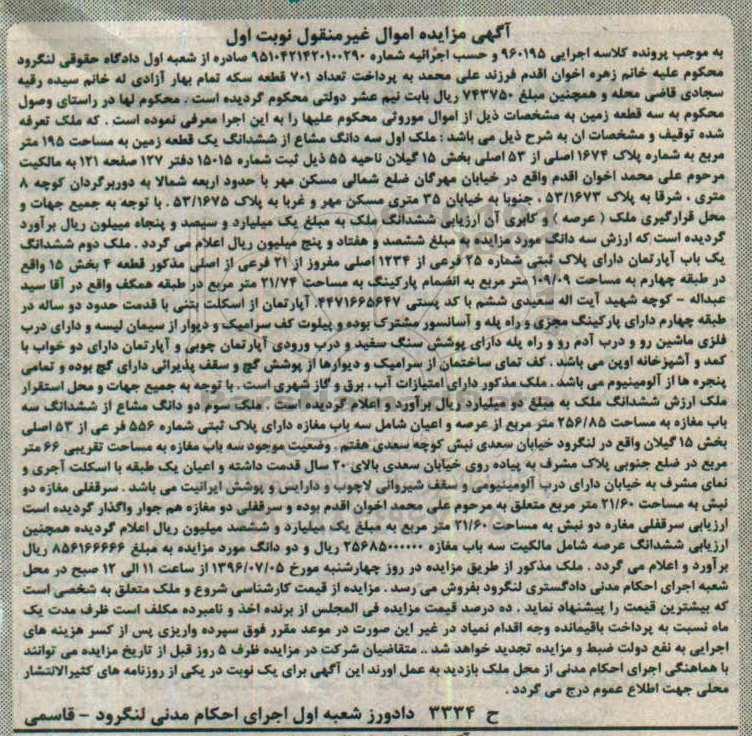 آگهی مزایده اموال غیرمنقول نوبت اول
به موجب پرونده کلاسه اجرایی ۹۶۰۱۹۵ و حسب اجرائیه شماره ۹۵۱۰۴۲۱۴۲۰۱۰۰۲۹۰ صادره از شعبه اول دادگاه حقوقی لنگرود
محکوم علیه خانم زهره اخوان اقدم فرزند علی محمد به پرداخت تعداد ۷۰۱ قطعه سکه تمام بهار آزادی له خانم سیده رقیه
سجادی قاضی محله و همچنین مبلغ ۷۴۳۷۵۰ ریال بابت نیم عشر دولتی محکوم گردیده است . محکوم لها در راستای وصول
محکوم به سه قطعه زمین به مشخصات ذیل از اموال موروثی محکوم علیها را به این اجرا معرفی نموده است . که ملک تعرفه
شده توقیف و مشخصات ان به شرح ذیل می باشد : ملک اول سه دانگ مشاع از ششدانگ یک قطعه زمین به مساحت ۱۹۵ متر
مربع به شماره پلاک ۱۶۷۴ اصلی از ۵۳ اصلی بخش ۱۵ گیلان ناحیه ۵۵ ذیل ثبت شماره ۱۵۰۱۵ دفتر ۱۲۷ صفحه ۱۲۱ به مالکیت
مرحوم علی محمد اخوان اقدم واقع در خیابان مهرگان ضلع شمالی مسکن مهر با حدود اربعه شمالا به دوربرگردان کوچه ۸
متری ، شرقا به پلاک ۵۳/۱۶۷۳ ، جنوبا به خیابان ۳۵ متری مسکن مهر و غربا به پلاک ۵۳/۱۶۷۵ . با توجه به جمیع جهات و
محل قرارگیری ملک ( عرصه ) و کابری آن ارزیابی ششدانگ ملک به مبلغ یک میلیارد و سیصد و پنجاه مییلون ریال برآورد
گردیده است که ارزش سه دانگ مورد مزایده به مبلغ ششصد و هفتاد و پنج میلیون ریال اعلام می گردد . ملک دوم ششدانگ
یک باب آپارتمان دارای پلاک ثبتی شماره ۲۵ فرعی از ۱۲۳۴ اصلی مفروز از ۲۱ فرعی از اصلی مذکور قطعه ۴ بخش ۱۵ واقع
در طبقه چهارم به مساحت ۱۰۹/۰۹ متر مربع به انضمام پارکینگ به مساحت ۲۱/۷۴ متر مربع در طبقه همکف واقع در آقا سید
عبداله - کوچه شهید آیت اله سعیدی ششم با کد پستی ۴۴۷۱۶۶۵۶۴۷. آپارتمان از اسکلت بتنی با قدمت حدود دو ساله در
طبقه چهارم دارای پارکینگ مجزی و راه پله و آسانسور مشترک بوده و پیلوت کف سرامیک و دیوار از سیمان لیسه و دارای درب
فلزی ماشین رو و درب آدم رو و راه پله دارای پوشش سنگ سفید و درب ورودی آپارتمان چوبی و آپارتمان دارای دو خواب با
کمد و آشپزخانه اوپن می باشد . کف تمای ساختمان از سرامیک و دیوارها از پوشش گچ و سقف پذیرائی دارای گچ بوده و تمامی
پنجره ها از آلومینیوم می باشد . ملک مذکور دارای امتیازات آب ، برق و گاز شهری است . با توجه به جمیع جهات و محل استقرار
ملک ارزش ششدانگ ملک به مبلغ دو میلیارد ریال برآورد و اعلام گردیده است . ملک سوم دو دانگ مشاع از ششدانگ سه
باب مغازه به مساحت ۲۵۶/۸۵ متر مربع از عرصه و اعیان شامل سه باب مغازه دارای پلاک ثبتی شماره ۵۵۶ فر عی از ۵۳ اصلی
بخش ۱۵ گیلان واقع در لنگرود خیابان سعدی نبش کوچه سعدی هفتم . وضعیت موجود سه باب مغازه به مساحت تقریبی ۶۶ متر
مربع در ضلع جنوبی پلاک مشرف به پیاده روی خیابان سعدی بالای ۲۰ سال قدمت داشته و اعیان یک طبقه با اسکلت آجری و
نمای مشرف به خیابان دارای درب آلومینیومی و سقف شیروانی لاچوب و دارابس و پوشش ایرانیت می باشد . سرقفلی مغازه دو
نبش به مساحت ۲۱/۶۰ متر مربع متعلق به مرحوم علی محمد اخوان اقدم بوده و سرقفلی دو مغازه هم جوار واگذار گردیده است
ارزیابی سرقفلی مغازه دو نبش به مساحت ۲۱/۶۰ متر مربع به مبلغ یک میلیارد و ششصد میلیون ریال اعلام گردیده همچنین
ارزیابی ششدانگ عرصه شامل مالکیت سه باب مغازه ۲۵۶۸۵۰۰۰۰۰۰ ریال و دو دانگ مورد مزایده به مبلغ ۸۵۶۱۶۶۶۶۶ ریال
برآورد و اعلام می گردد . ملک مذکور از طریق مزایده در روز چهارشنبه مورخ ۱۳۹۶/۰۷/۰۵ از ساعت ۱۱ الی ۱۲ صبح در محل
شعبه اجرای احکام مدنی دادگستری لنگرود بفروش می رسد . مزایده از قیمت کارشناسی شروع و ملک متعلق به شخصی است
که بیشترین قیمت را پیشنهاد نماید . ده درصد قیمت مزایده فی المجلس از برنده اخذ و نامبرده مکلف است ظرف مدت یک
ماه نسبت به پرداخت باقیمانده وجه اقدام نمیاد در غیر این صورت در موعد مقرر فوق سپرده واریزی پس از کسر هزینه های
اجرایی به نفع دولت ضبط و مزایده تجدید خواهد شد .. متقاضیان شرکت در مزایده ظرف ۵ روز قبل از تاریخ مزایده می توانند
با هماهنگی اجرای احکام مدنی از محل ملک بازدید به عمل اورند این آگهی برای یک نوبت در یکی از روزنامه های کثیرالانتشار
محلی جهت اطلاع عموم درج می گردد .
ح ۳۳۳۴ دادورز شعبه اول اجرای احکام مدنی لنگرود - قاسمی